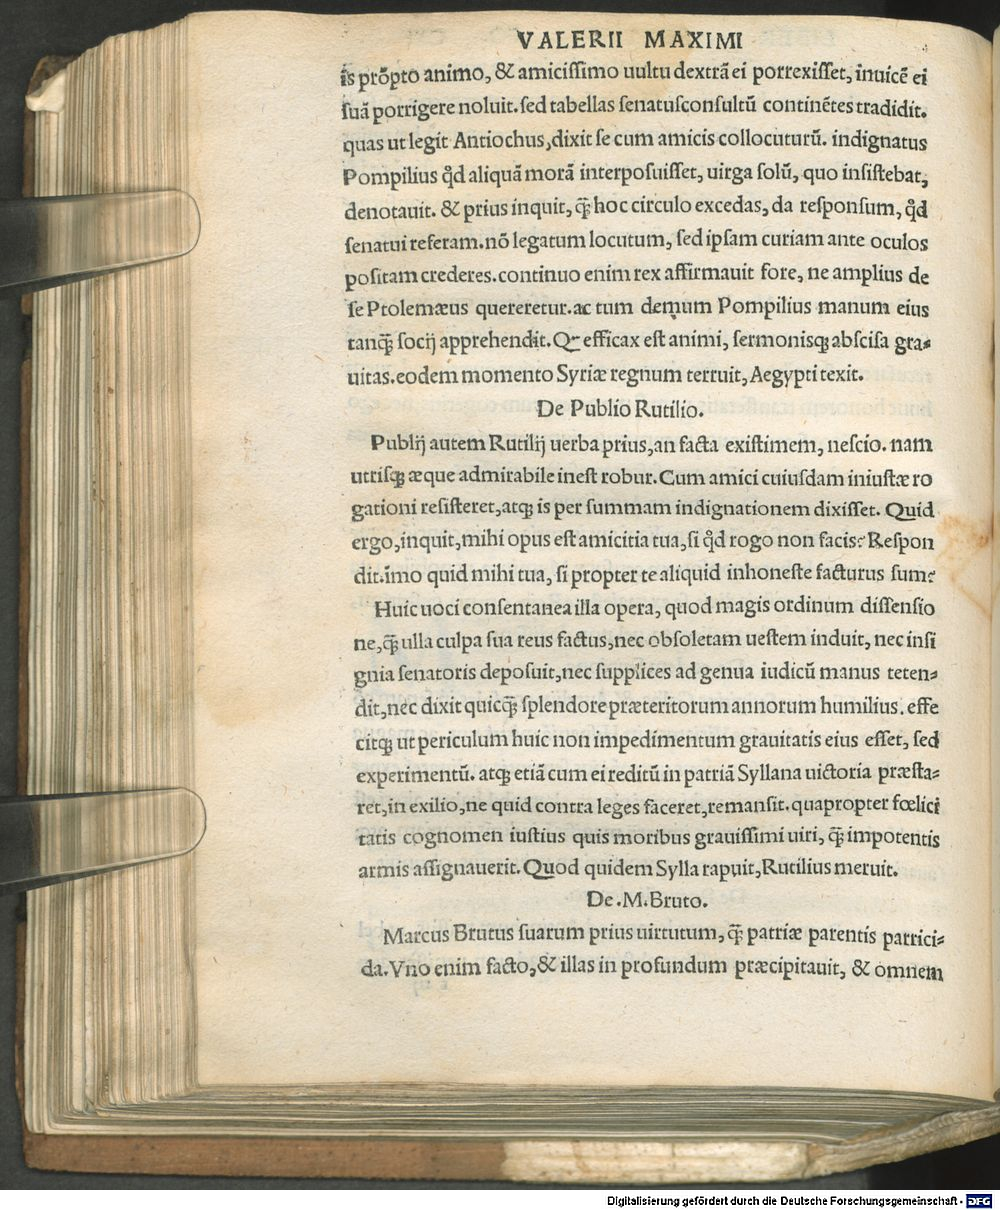 VALERII MAXIMI
is prōpto animo, & amicissimo uultu dextrā ei porrexisset, inuicē ei
suā porrigere noluit. sed tabellas senatusconsultū continētes tradidit.
quas ut legit Antiochus, dixit se cum amicis collocuturū. indignatus
Pompilius qđ aliquā morā interposuisset, uirga solū, quo insistebat,
denotauit. & prius inquit, q̃ hoc circulo excedas, da responsum, qđ
senatui referam. nō legatum locutum, sed ipsam curiam ante oculos
positam crederes. continuo enim rex affirmauit fore, ne amplius de
se Ptolemæus quereretur. ac tum demum Pompilius manum eius
tanq̃ socij apprehendit. Q̃ efficax est animi, sermonisq; abscisa gra-
uitas. eodem momento Syriæ regnum terruit, Aegypti texit.
De Publio Rutilio.
Publij autem Rutilij uerba prius, an facta existimem, nescio. nam
utrisq; æque admirabile inest robur. Cum amici cuiusdam iniustæ ro
gationi resisteret, atq; is per summam indignationem dixisset. Quid
ergo, inquit, mihi opus est amicitia tua, si qđ rogo non facis? Respon
dit. imo quid mihi tua, si propter te aliquid inhoneste facturus sum?
Huic uoci consentanea illa opera, quod magis ordinum dissensio
ne, q̃ ulla culpa sua reus factus, nec obsoletam uestem induit, nec insi
gnia senatoris deposuit, nec supplices ad genua iudicū manus teten-
dit, nec dixit quicq̃ splendore præteritorum annorum humilius. effe
citq; ut periculum huic non impedimentum grauitatis eius esset, sed
experimentū. atq; etiā cum ei reditū in patriā Syllana uictoria præsta-
ret, in exilio, ne quid contra leges faceret, remansit. quapropter fœlici
tatis cognomen iustius quis moribus grauissimi uiri, q̃ impotentis
armis assignauerit. Quod quidem Sylla rapuit, Rutilius meruit.
De .M. Bruto.
Marcus Brutus suarum prius uirtutum, q̃ patriæ parentis parrici-
da. Vno enim facto, & illas in profundum præcipitauit, & omnem
Digitalisierung gefördert durch die Deutsche Forschungsgemeinschaft - DFG